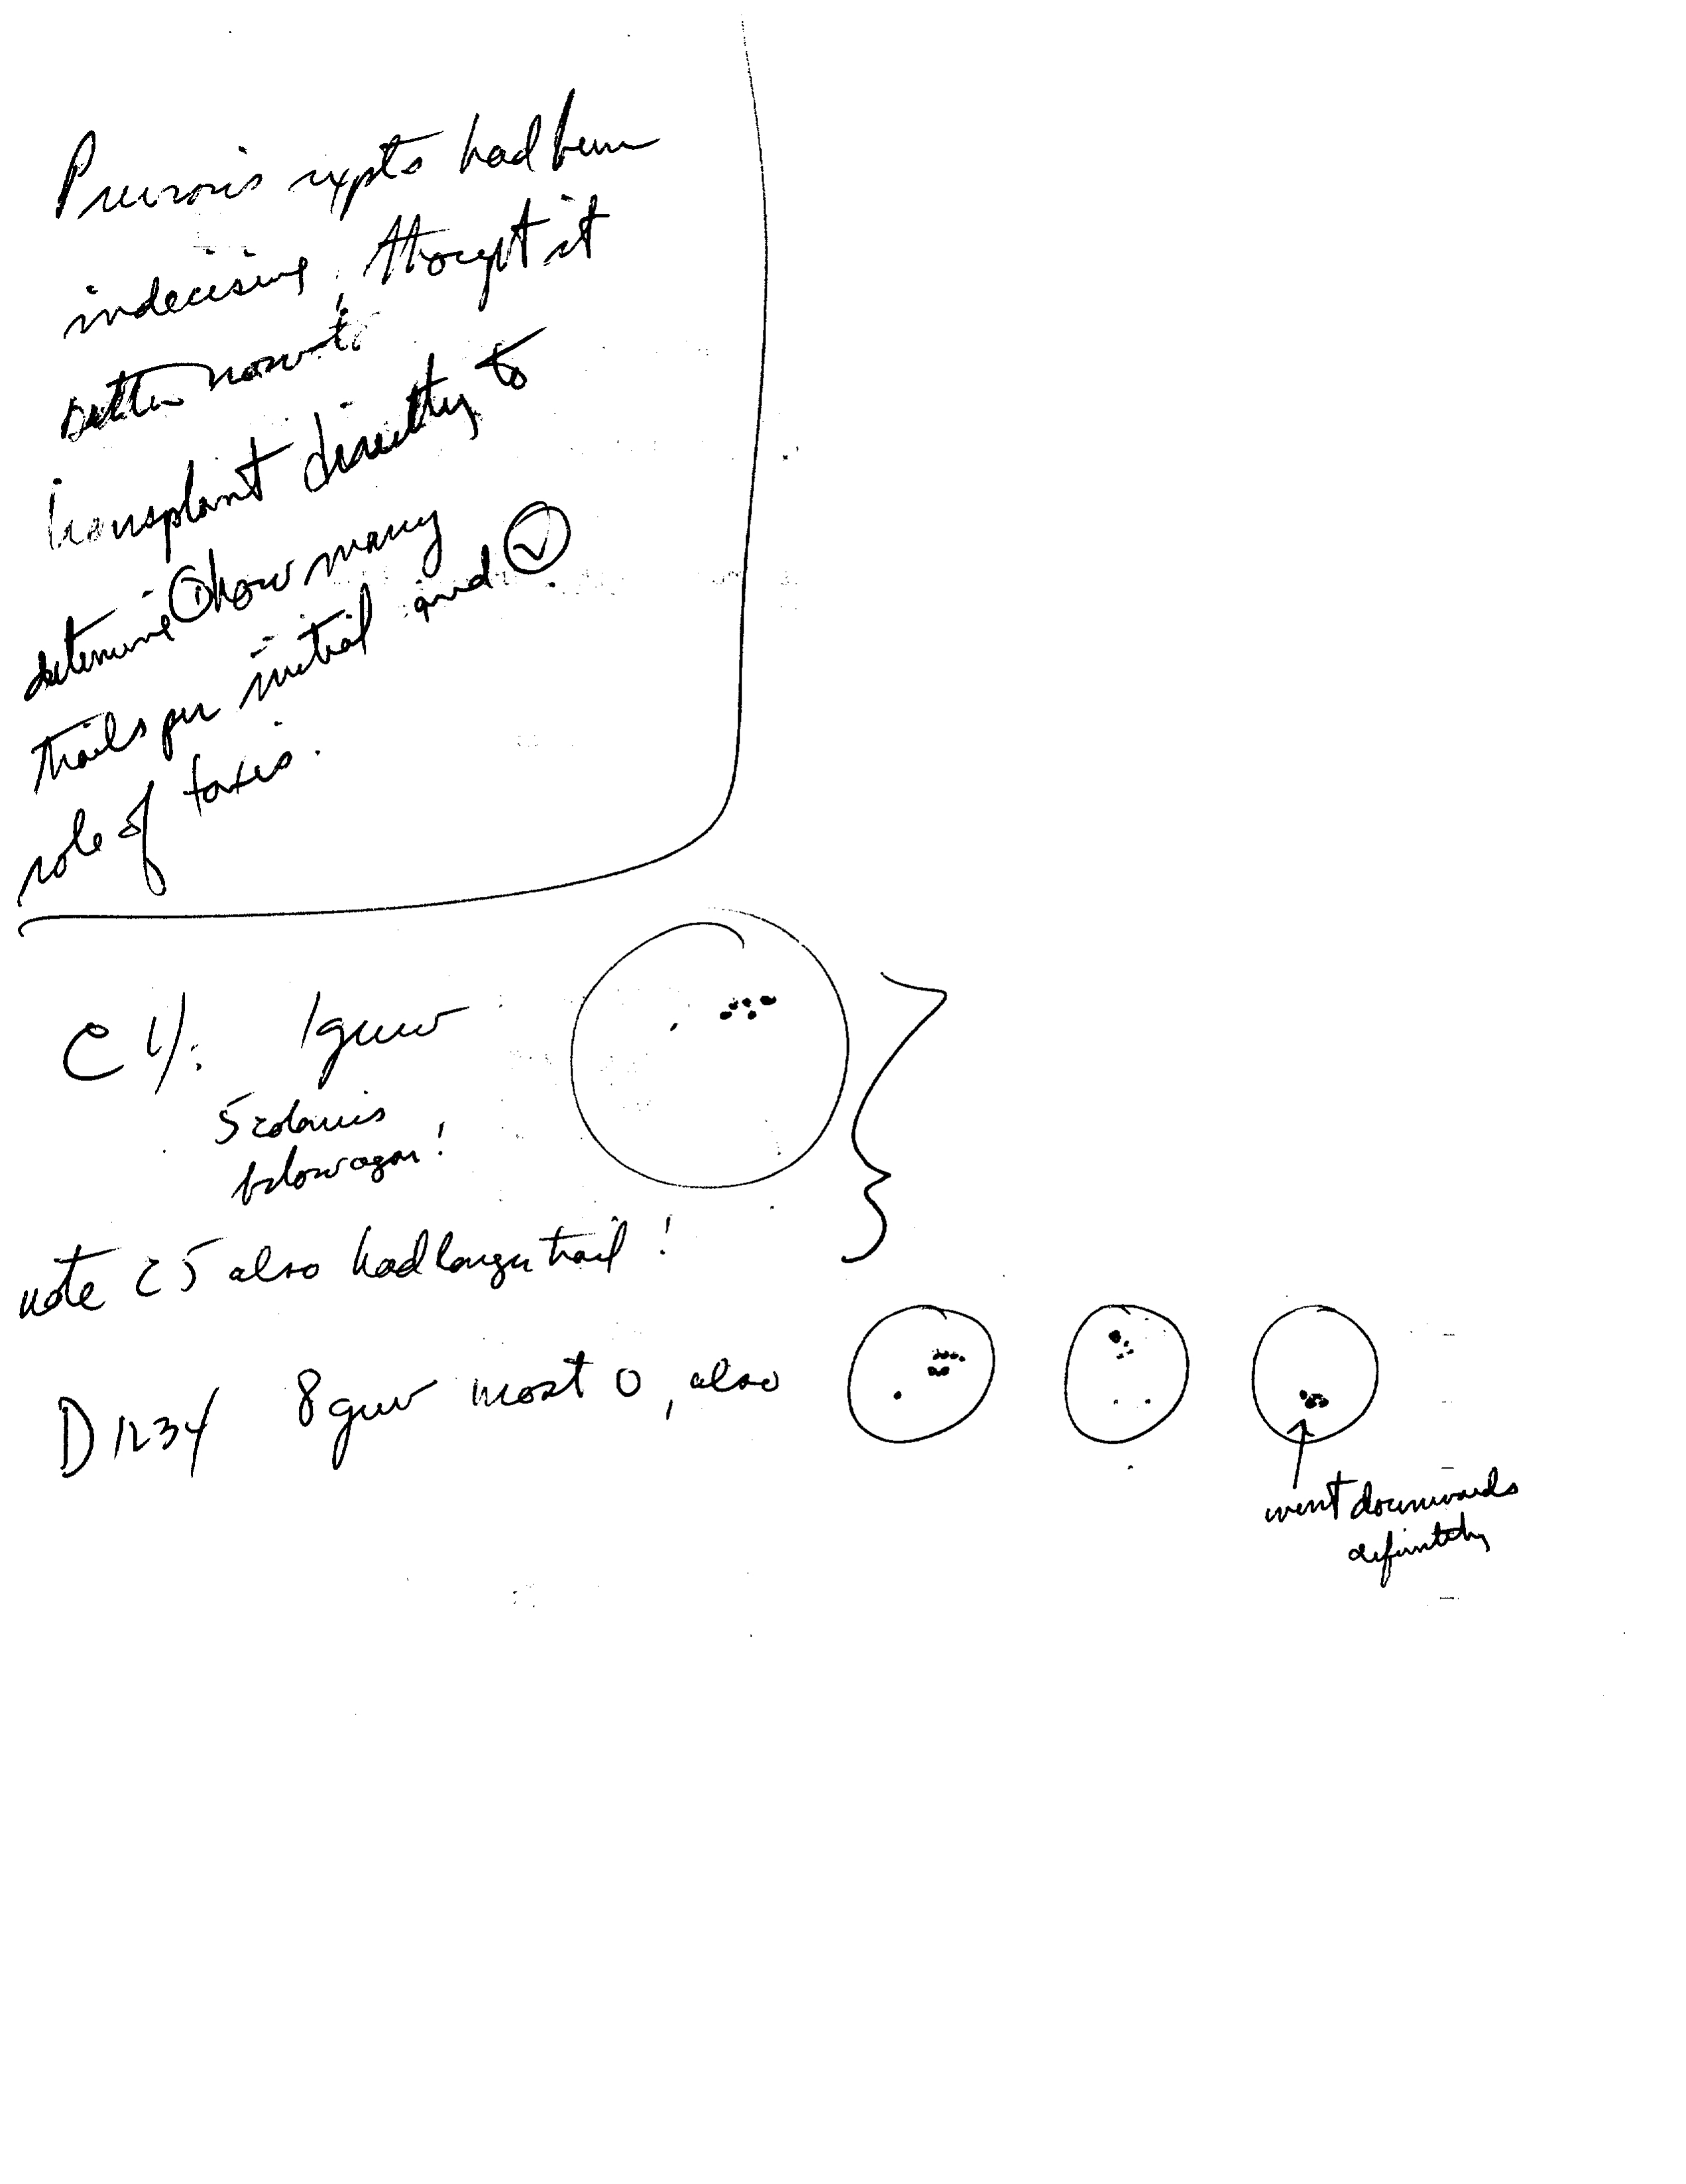 Previous expts had been
indecisive, thought it
better now to
transplant directly to
determine ① how many
trails per initial and ②
role of taxis.
C 1/: 1 grew
5 colonies
below agar!
note C5 also had longer trail!
D 1234 8 grew most 0, also
went downwards
definitely